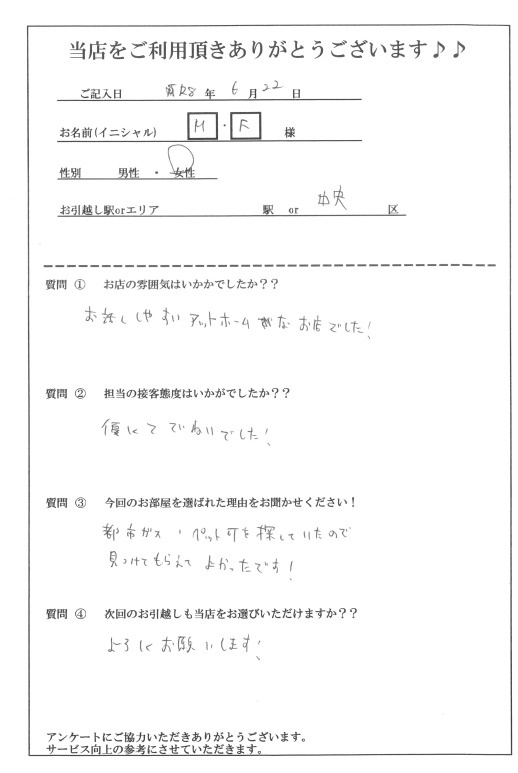 当店をご利用頂きありがとうございます♪♪
ご記入日 年 6 月 22 日
お名前(イニシャル) H・F 様
性別 男性・女性
お引越し駅orエリア 駅 or 中央 区
質問 ① お店の雰囲気はいかかでしたか??
お話ししやすいアットホームな お店でした!
質問 ② 担当の接客態度はいかがでしたか??
優しくて ていねいでした!
質問 ③ 今回のお部屋を選ばれた理由をお聞かせください!
都市ガス、ペット可を探していたので
見つけてもらえて よかったです!
質問 ④ 次回のお引越しも当店をお選びいただけますか??
よろしくお願いします!
アンケートにご協力いただきありがとうございます。
サービス向上の参考にさせていただきます。